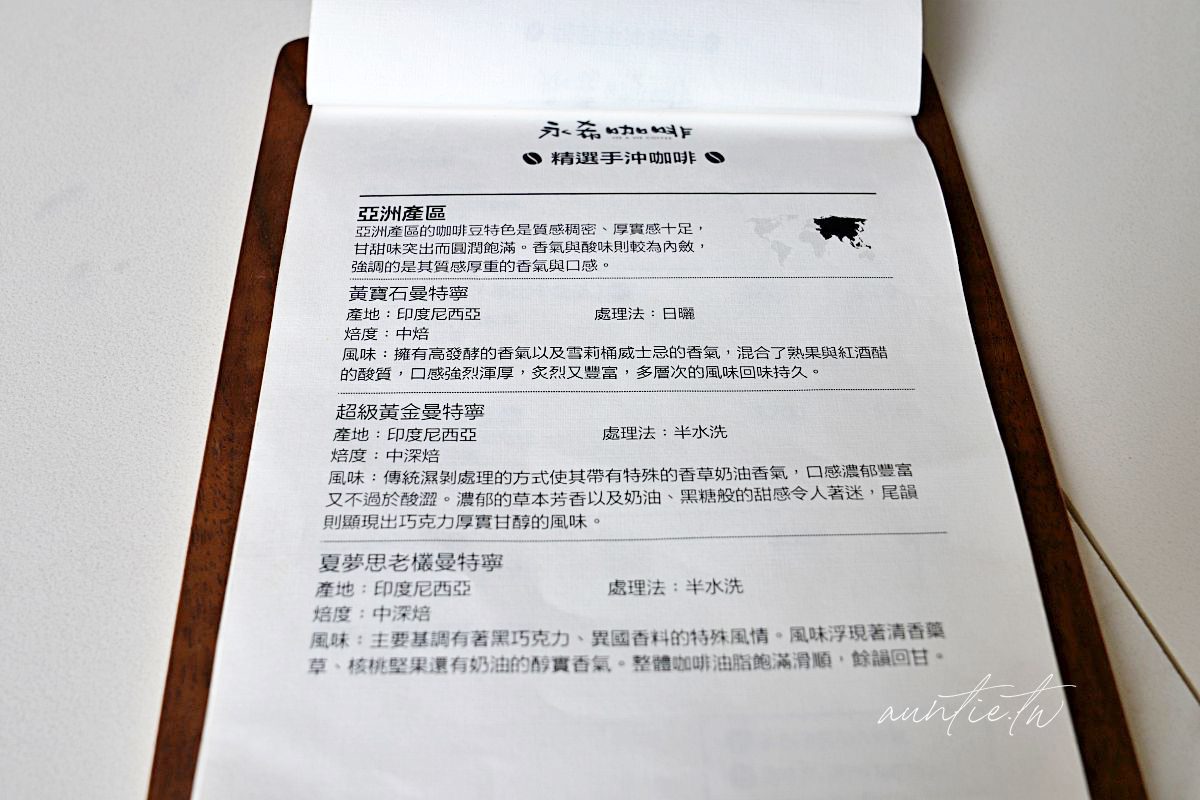 永希咖啡
精選手沖咖啡
亞洲產區
亞洲產區的咖啡豆特色是質感稠密、厚實感十足，
甘甜味突出而圓潤飽滿。香氣與酸味則較為內斂，
強調的是其質感厚重的香氣與口感。
黃寶石曼特寧
產地：印度尼西亞 處理法：日曬
焙度：中焙
風味：擁有高發酵的香氣以及雪莉桶威士忌的香氣，混合了熟果與紅酒醋
的酸質，口感強烈渾厚，炙烈又豐富，多層次的風味回味持久。
超級黃金曼特寧
產地：印度尼西亞 處理法：半水洗
焙度：中深焙
風味：傳統濕剝處理的方式使其帶有特殊的香草奶油香氣，口感濃郁豐富
又不過於酸澀。濃郁的草本芳香以及奶油、黑糖般的甜感令人著迷，尾韻
則顯現出巧克力厚實甘醇的風味。
夏夢思老欉曼特寧
產地：印度尼西亞 處理法：半水洗
焙度：中深焙
風味：主要基調有著黑巧克力、異國香料的特殊風情。風味浮現著清香藥
草、核桃堅果還有奶油的醇實香氣。整體咖啡油脂飽滿滑順，餘韻回甘。
auntie.tw